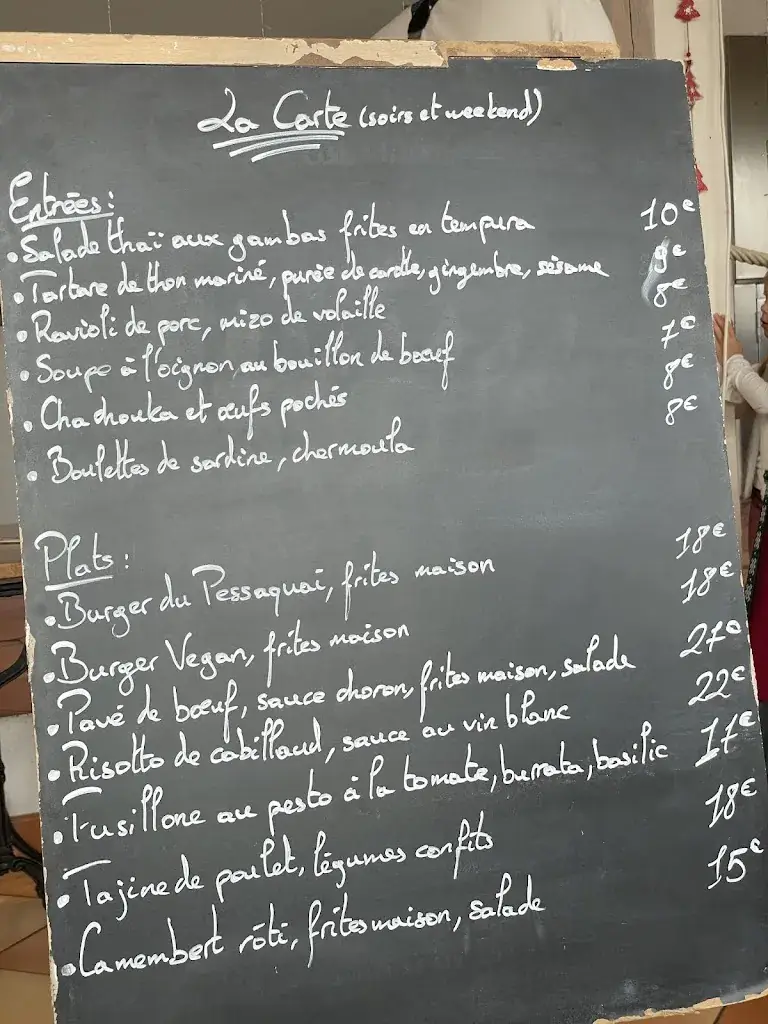 La Carte (soirs et weekend)
Entrées :
• Salade thaï aux gambas frites en tempura 10€
• Tartare de thon mariné, purée de carotte, gingembre, sésame 9€
• Ravioli de porc, mizo de volaille 8€
• Soupe à l'oignon, au bouillon de bœuf 7€
• Chachouka et œufs pochés 8€
• Boulettes de sardine, chermoula 8€
Plats :
• Burger du Pessaquai, frites maison 18€
• Burger Vegan, frites maison 18€
• Pavé de bœuf, sauce choron, frites maison, salade 27€
• Risotto de cabillaud, sauce au vin blanc 22€
• Fusillone au pesto à la tomate, burrata, basilic 17€
• Tajine de poulet, légumes confits 18€
• Camembert rôti, frites maison, salade 15€